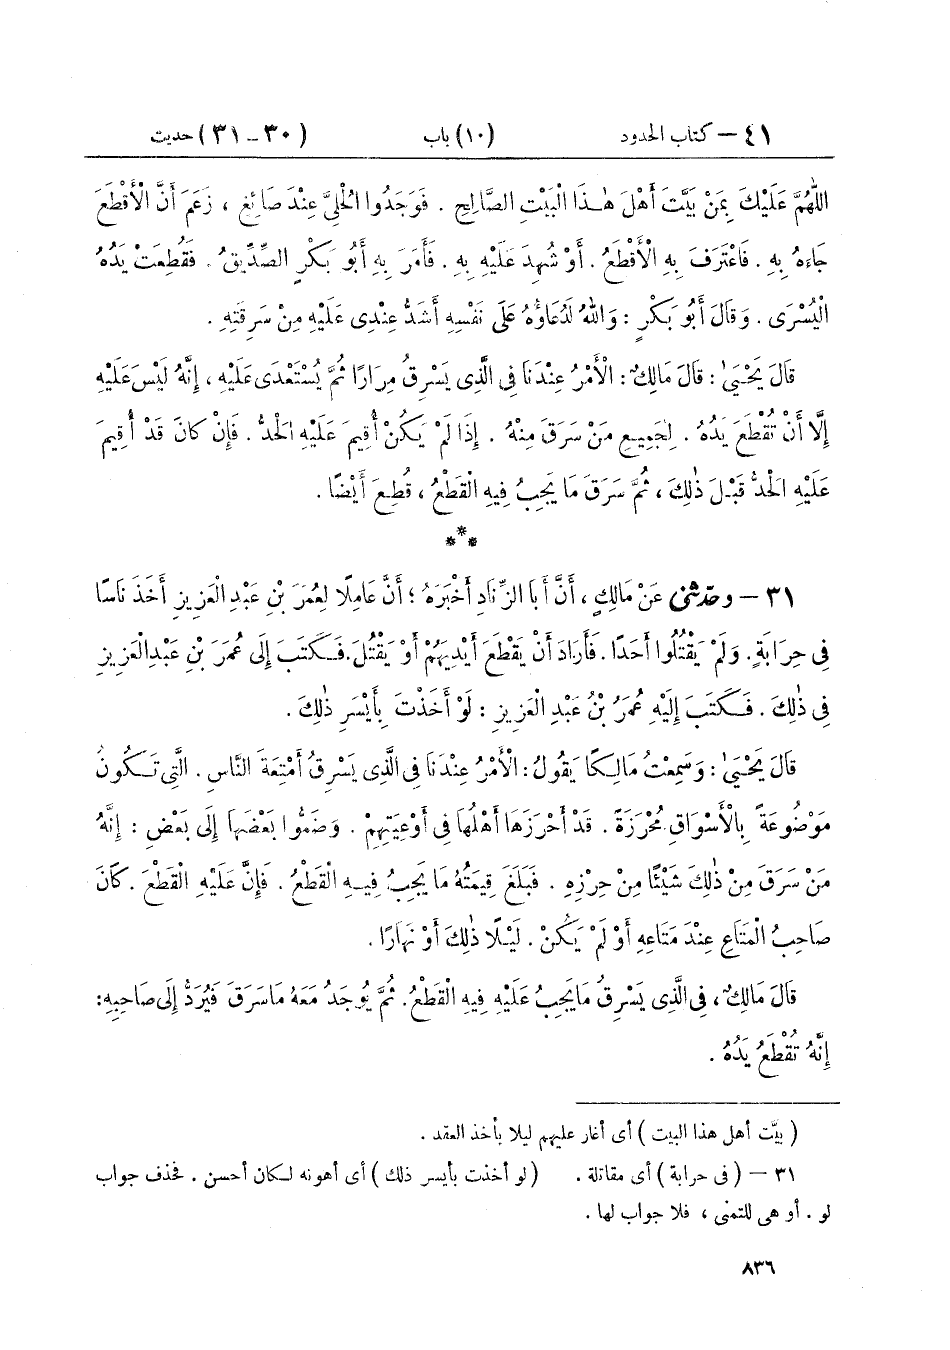 ٤١ – كتاب الحدود (١٠) باب (٣٠ – ٣١) حديث
اللّٰهُمَّ عَلَيْكَ بِمَنْ بَيَّتَ أَهْلَ هٰذَا الْبَيْتِ الصَّالِحِ . فَوَجَدُوا الْحُلِىَّ عِنْدَ صَائِغٍ ، زَعَمَ أَنَّ الْأَقْطَعَ
جَاءَهُ بِهِ . فَاعْتَرَفَ بِهِ الْأَقْطَعُ . أَوْ شُهِدَ عَلَيْهِ بِهِ . فَأَمَرَ بِهِ أَبُو بَكْرٍ الصِّدِّيقُ . فَقُطِعَتْ يَدُهُ
الْيُسْرَى . وَقَالَ أَبُو بَكْرٍ : وَاللهُ لَدُعَاؤُهُ عَلَى نَفْسِهِ أَشَدُّ عِنْدِى عَلَيْهِ مِنْ سَرِقَتِهِ .
قَالَ يَحْيَىٰ : قَالَ مَالِكٌ : الْأَمْرُ عِنْدَنَا فِى الَّذِى يَسْرِقُ مِرَارًا ثُمَّ يُسْتَعْدَى عَلَيْهِ ، إِنَّهُ لَيْسَ عَلَيْهِ
إِلَّا أَنْ تُقْطَعَ يَدُهُ . لِجَمِيعِ مَنْ سَرَقَ مِنْهُ . إِذَا لَمْ يَكُنْ أُقِيمَ عَلَيْهِ الْحَدُّ . فَإِنْ كَانَ قَدْ أُقِيمَ
عَلَيْهِ الْحَدُّ قَبْلَ ذٰلِكَ ، ثُمَّ سَرَقَ مَا يَجِبُ فِيهِ الْقَطْعُ ، قُطِعَ أَيْضًا .
***
٣١ – وحدّثنى عَنْ مَالِكٍ ، أَنَّ أَبَا الزِّنَادِ أَخْبَرَهُ ؛ أَنَّ عَامِلًا لِعُمَرَ بْنِ عَبْدِ الْعَزِيزِ أَخَذَ نَاسًا
فِى حِرَابَةٍ . وَلَمْ يَقْتُلُوا أَحَدًا . فَأَرَادَ أَنْ يَقْطَعَ أَيْدِيَهُمْ أَوْ يَقْتُلَ . فَكَتَبَ إِلَى عُمَرَ بْنِ عَبْدِ الْعَزِيزِ
فِى ذٰلِكَ . فَكَتَبَ إِلَيْهِ عُمَرُ بْنُ عَبْدِ الْعَزِيزِ : لَوْ أَخَذْتَ بِأَيْسَرِ ذٰلِكَ .
قَالَ يَحْيَىٰ : وَسَمِعْتُ مَالِكًا يَقُولُ : الْأَمْرُ عِنْدَنَا فِى الَّذِى يَسْرِقُ أَمْتِعَةَ النَّاسِ . الَّتِى تَكُونُ
مَوْضُوعَةً بِالْأَسْوَاقِ مُحْرَزَةً . قَدْ أَحْرَزَهَا أَهْلُهَا فِى أَوْعِيَتِهِمْ . وَضَمُّوا بَعْضَهَا إِلَى بَعْضٍ : إِنَّهُ
مَنْ سَرَقَ مِنْ ذٰلِكَ شَيْئًا مِنْ حِرْزِهِ . فَبَلَغَ قِيمَتُهُ مَا يَجِبُ فِيهِ الْقَطْعُ . فَإِنَّ عَلَيْهِ الْقَطْعَ . كَانَ
صَاحِبُ الْمَتَاعِ عِنْدَ مَتَاعِهِ أَوْ لَمْ يَكُنْ . لَيْلًا ذٰلِكَ أَوْ نَهَارًا .
قَالَ مَالِكٌ ، فِى الَّذِى يَسْرِقُ مَا يَجِبُ عَلَيْهِ فِيهِ الْقَطْعُ . ثُمَّ يُوجَدُ مَعَهُ مَا سَرَقَ فَيُرَدُّ إِلَى صَاحِبِهِ :
إِنَّهُ تُقْطَعُ يَدُهُ .
( بيَّت أهل هذا البيت ) أى أغار عليهم ليلا بأخذ العقد .
٣١ – ( فى حرابة ) أى مقاتلة . ( لو أخذت بأيسر ذلك ) أى أهونه لكان أحسن . فحذف جواب
لو . أو هى للتمنى ، فلا جواب لها .
٨٣٦